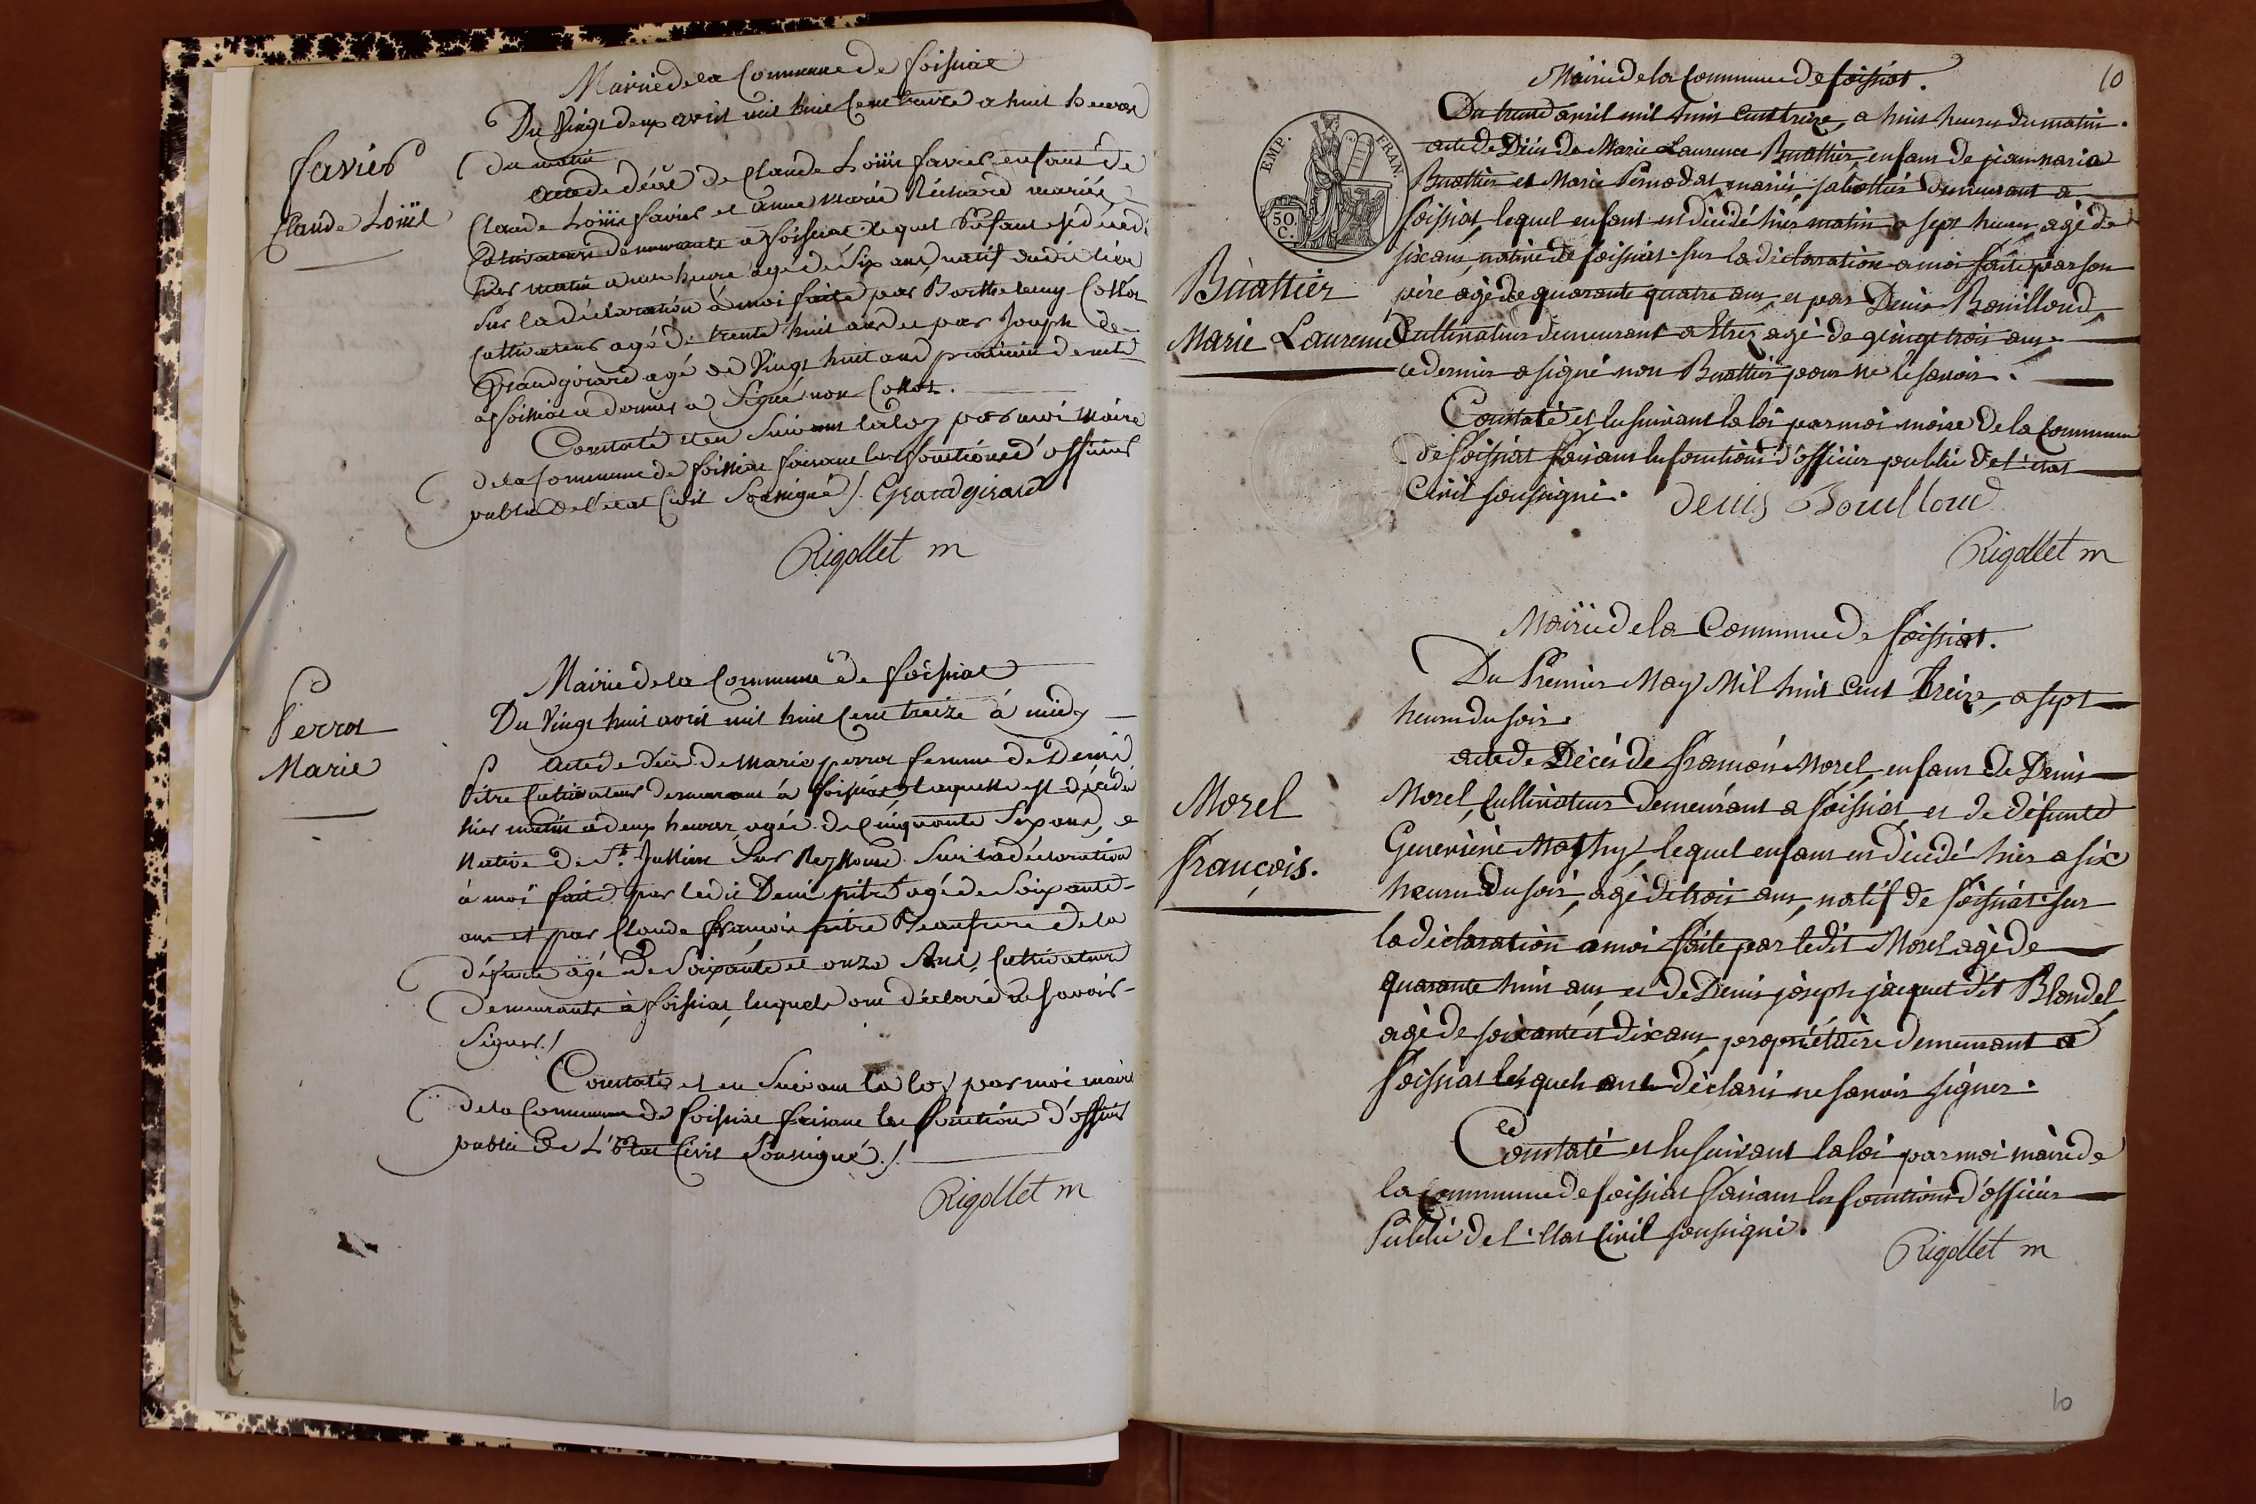 Mairie de la Commune de foissiat
Du Vingt deux avril mil huit Cent treize a huit heures
du matin
favier
Claude Loüis
acte de décès de Claude Loüis favier enfant de
Claude Loüis favier et anne marie Réchard mariés
Cultivateurs demeurants a foissiat lequel Enfant est décédé
hier matin a une heure agé de Six ans, natif dudit lieu
Sur la déclaration à moi faite par Barthelemy Collot
Cultivateur agé de trente huit ans et par Joseph
Grandgirard agé de Vingt huit ans praticien
a foissiat ce dernier a Signé non Collot.
Constaté et lu Suivant la loy par moi Maire
de la Commune de foissiat faisant les fonctions d'officier
public de l'état Civil Soussigné ./. Grandgirard
Rigollet m
Mairie de la Commune de foissiat
Du Vingt huit avril mil huit Cent treize à midy
Perrot
Marie
Acte de décès de marie perrot femme de Denis
Pitre Cultivateur demeurant à foissiat, laquelle est décédée
hier matin a deux heures, agée de Cinquante Six ans,
Native de St Jullien Sur Reyssouze. Sur la déclaration
à moi faite par ledit Denis pitre agé de Soixante
ans et par Claude françois pitre Beaufrere de la
défunte agé de Soixante et onze Ans, Cultivateurs
Demeurants à foissiat, lesquels ont déclaré ne Savoir
Signer ./
Constaté et lu Suivant la loy par moi maire
de la Commune de foissiat faisant les fonctions d'officier
public De L'Etat Civil Soussigné ./.
Rigollet m
10
Mairie de la Commune de foissiat.
EMP. FRAN.
50
C.
Du trente avril mil huit cent treize, a huit heures du matin.
acte de Décès de Marie Laurence Buattier, enfant de jean marie
Buattier et Marie Pernodat mariés, sabottier demeurant a
foissiat, lequel enfant est décédé hier matin a sept heures agé de
six ans, native de foissiat. sur la déclaration a moi faite par son
Buattier
Marie Laurence
père agé de quarante quatre ans, et par Denis Bouilloud,
Cultivateur demeurant a Etrez agé de vingt trois ans.
ce dernier a signé non Buattier pour ne le savoir.
Constaté et lu suivant la loi par moi maire de la Commune
de foissiat faisant les fonctions d'officier public de l'état
Civil soussigné. denis Bouilloud
Rigollet m
Mairie de la Commune de foissiat.
Du Premier May Mil huit Cent Treize, a sept
heures du soir.
Morel
françois.
acte de Décès de françois Morel, enfant de Denis
Morel, Cultivateur demeurant a foissiat, et de défunte
Genevieve Mathy, lequel enfant est décédé hier a six
heures du soir, agé de trois ans, natif de foissiat. sur
la déclaration a moi faite par ledit Morel agé de
quarante huit ans, et de Denis joseph jacquet dit Blondel
agé de soixante et dix ans, propriétaire demeurant a
foissiat lesquels ont déclaré ne savoir signer.
Constaté et lu suivant la loi par moi maire de
la Commune de foissiat faisant les fonctions d'officier
Public de l'état Civil soussigné.
Rigollet m
10